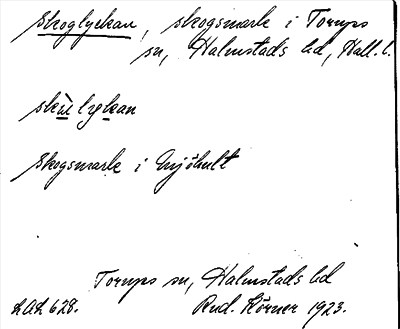 Skoglyckan, skogsmark i Torups
sn, Halmstads hd, Hall. l.
skù lykan
Skogsmark i Mjöhult
Torups sn, Halmstads hd
LAL 628. Rud. Körner 1923.